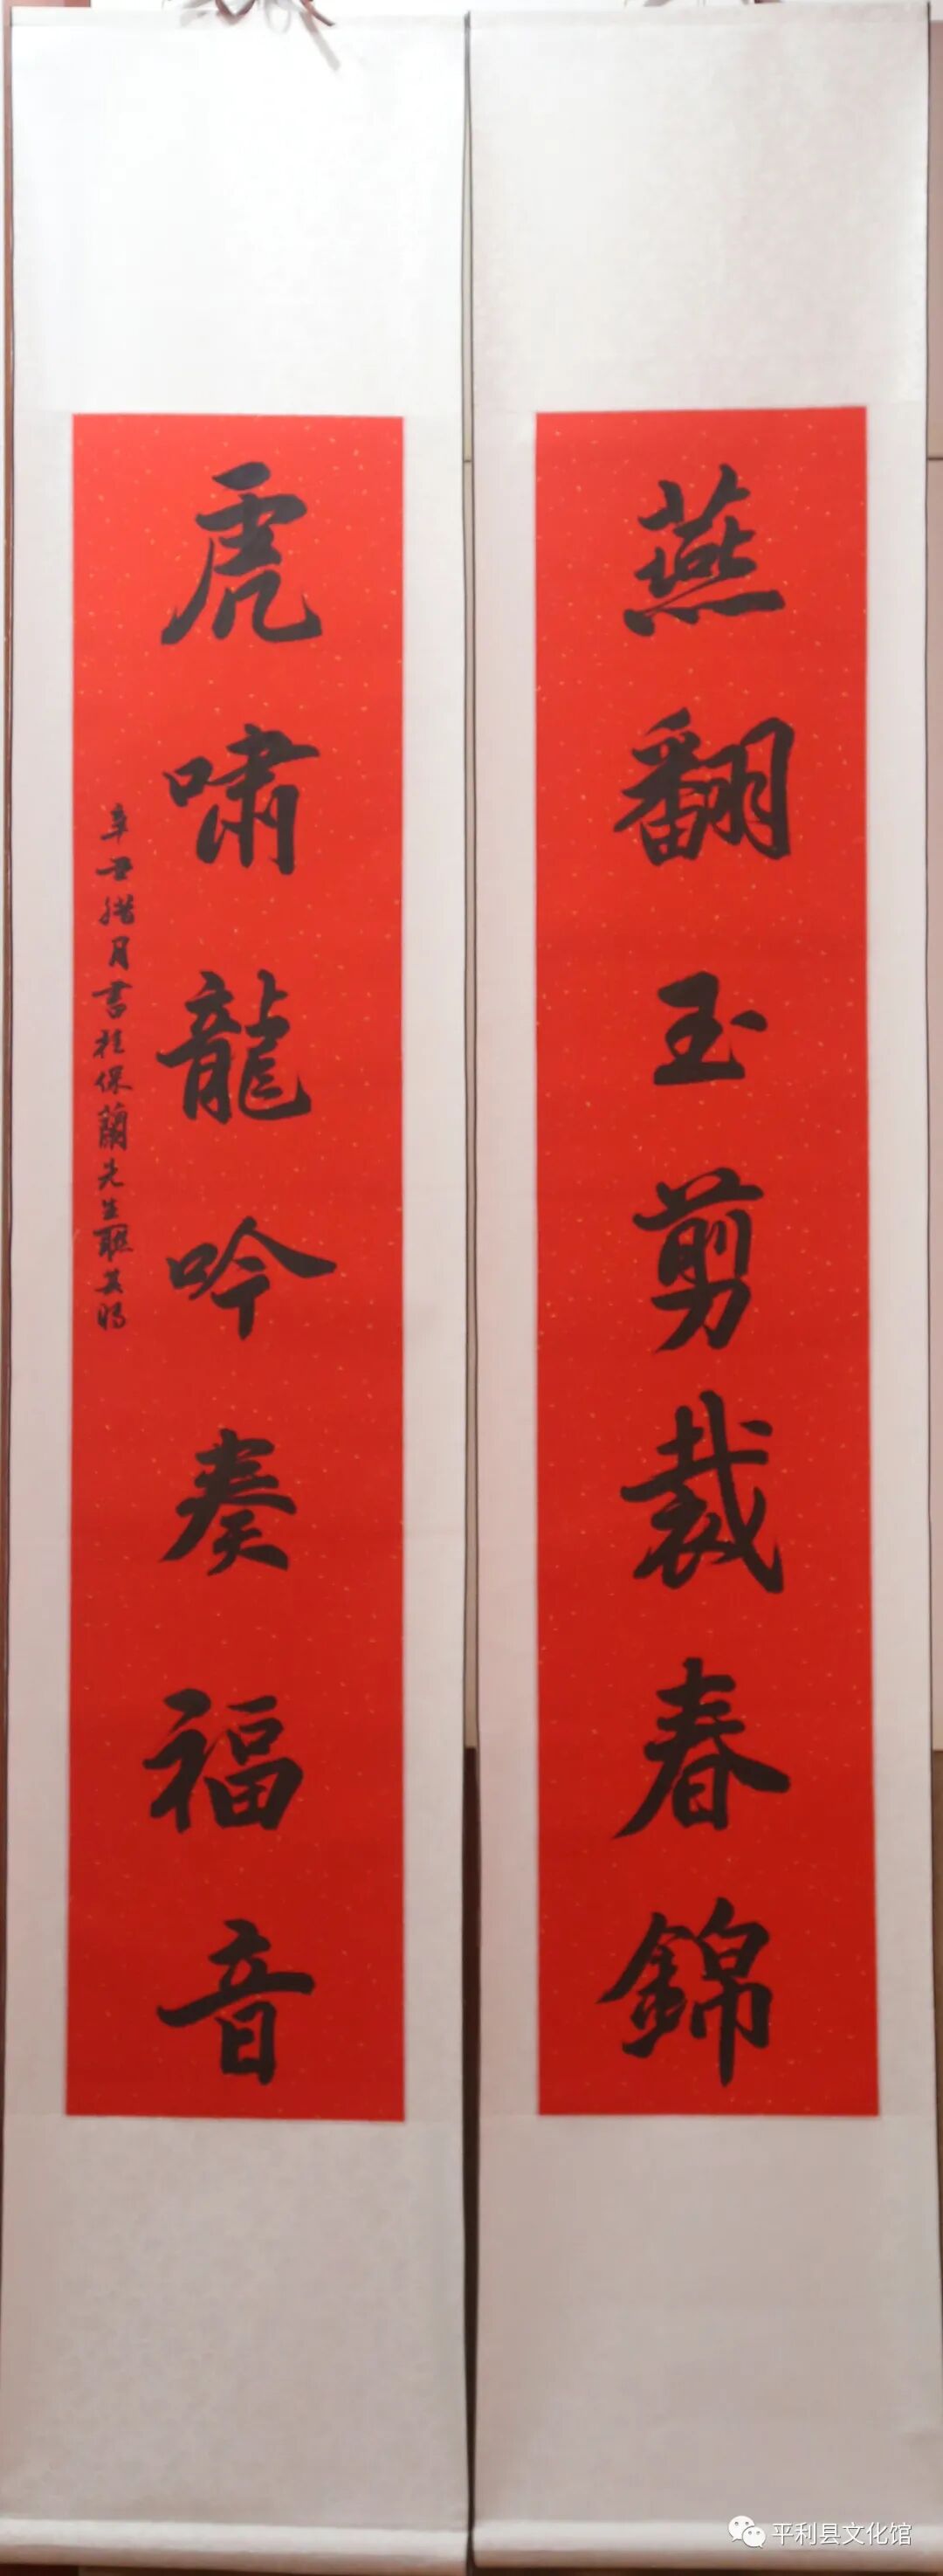 燕翻玉剪裁春錦
虎啸龍吟奏福音
辛丑腊月書於保蘭先生聯其暘
平利县文化馆